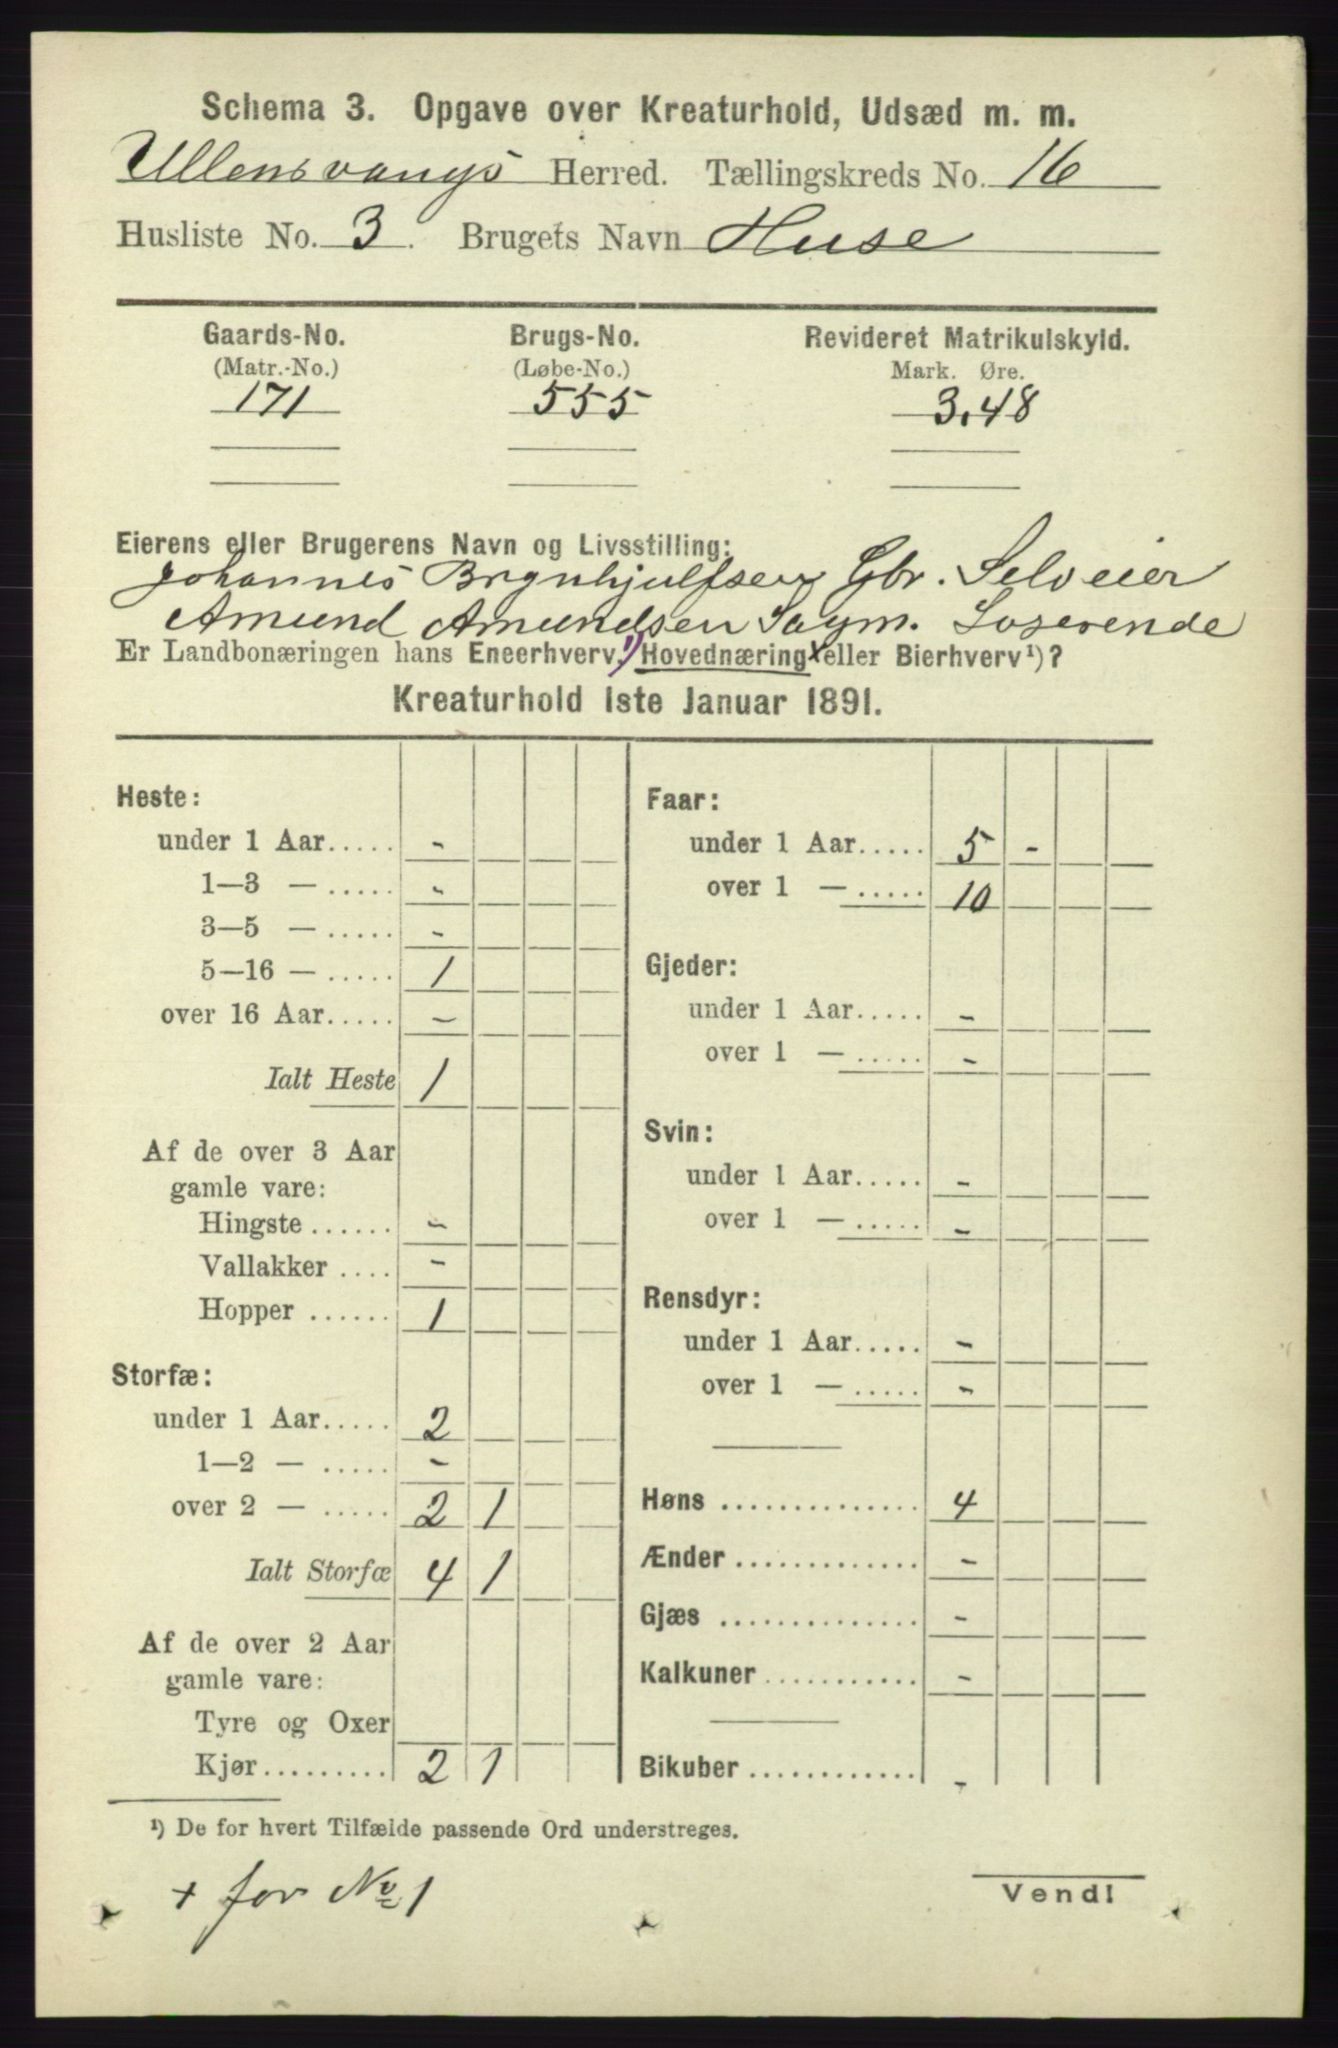 Schema 3. Opgave over Kreaturhold, Udsæd m. m.
Ullensvangs Herred. Tællingskreds No. 16
Husliste No. 3. Brugets Navn Huse
Gaards-No. Brugs-No. Revideret Matrikulskyld.
(Matr.-No.) (Løbe-No.) Mark. Øre.
171 555 3,48
Eierens eller Brugerens Navn og Livsstilling:
Johannes Brynhjulfsen Gbr. Selveier
Amund Amundsen Sagm. Loserende
Er Landbonæringen hans Eneerhverv,¹) Hovednæring x eller Bierhverv¹)?
Kreaturhold 1ste Januar 1891.
Heste:
under 1 Aar..... -
1—3 — ..... -
3—5 — ..... -
5—16 — ..... 1
over 16 Aar..... -
Ialt Heste 1
Af de over 3 Aar
gamle vare:
Hingste ...... -
Vallakker .... -
Hopper ...... 1
Storfæ:
under 1 Aar..... 2
1—2 — ..... -
over 2 — ..... 2 1
Ialt Storfæ 4 1
Af de over 2 Aar
gamle vare:
Tyre og Oxer
Kjør.......... 2 1
Faar:
under 1 Aar..... 5 -
over 1 — ..... 10
Gjeder:
under 1 Aar..... -
over 1 — ..... -
Svin:
under 1 Aar..... -
over 1 — ..... -
Rensdyr:
under 1 Aar..... -
over 1 — ..... -
Høns .............. 4
Ænder ............. -
Gjæs .............. -
Kalkuner ........... -
Bikuber ............ -
¹) De for hvert Tilfælde passende Ord understreges.
+ for No 1
Vend!